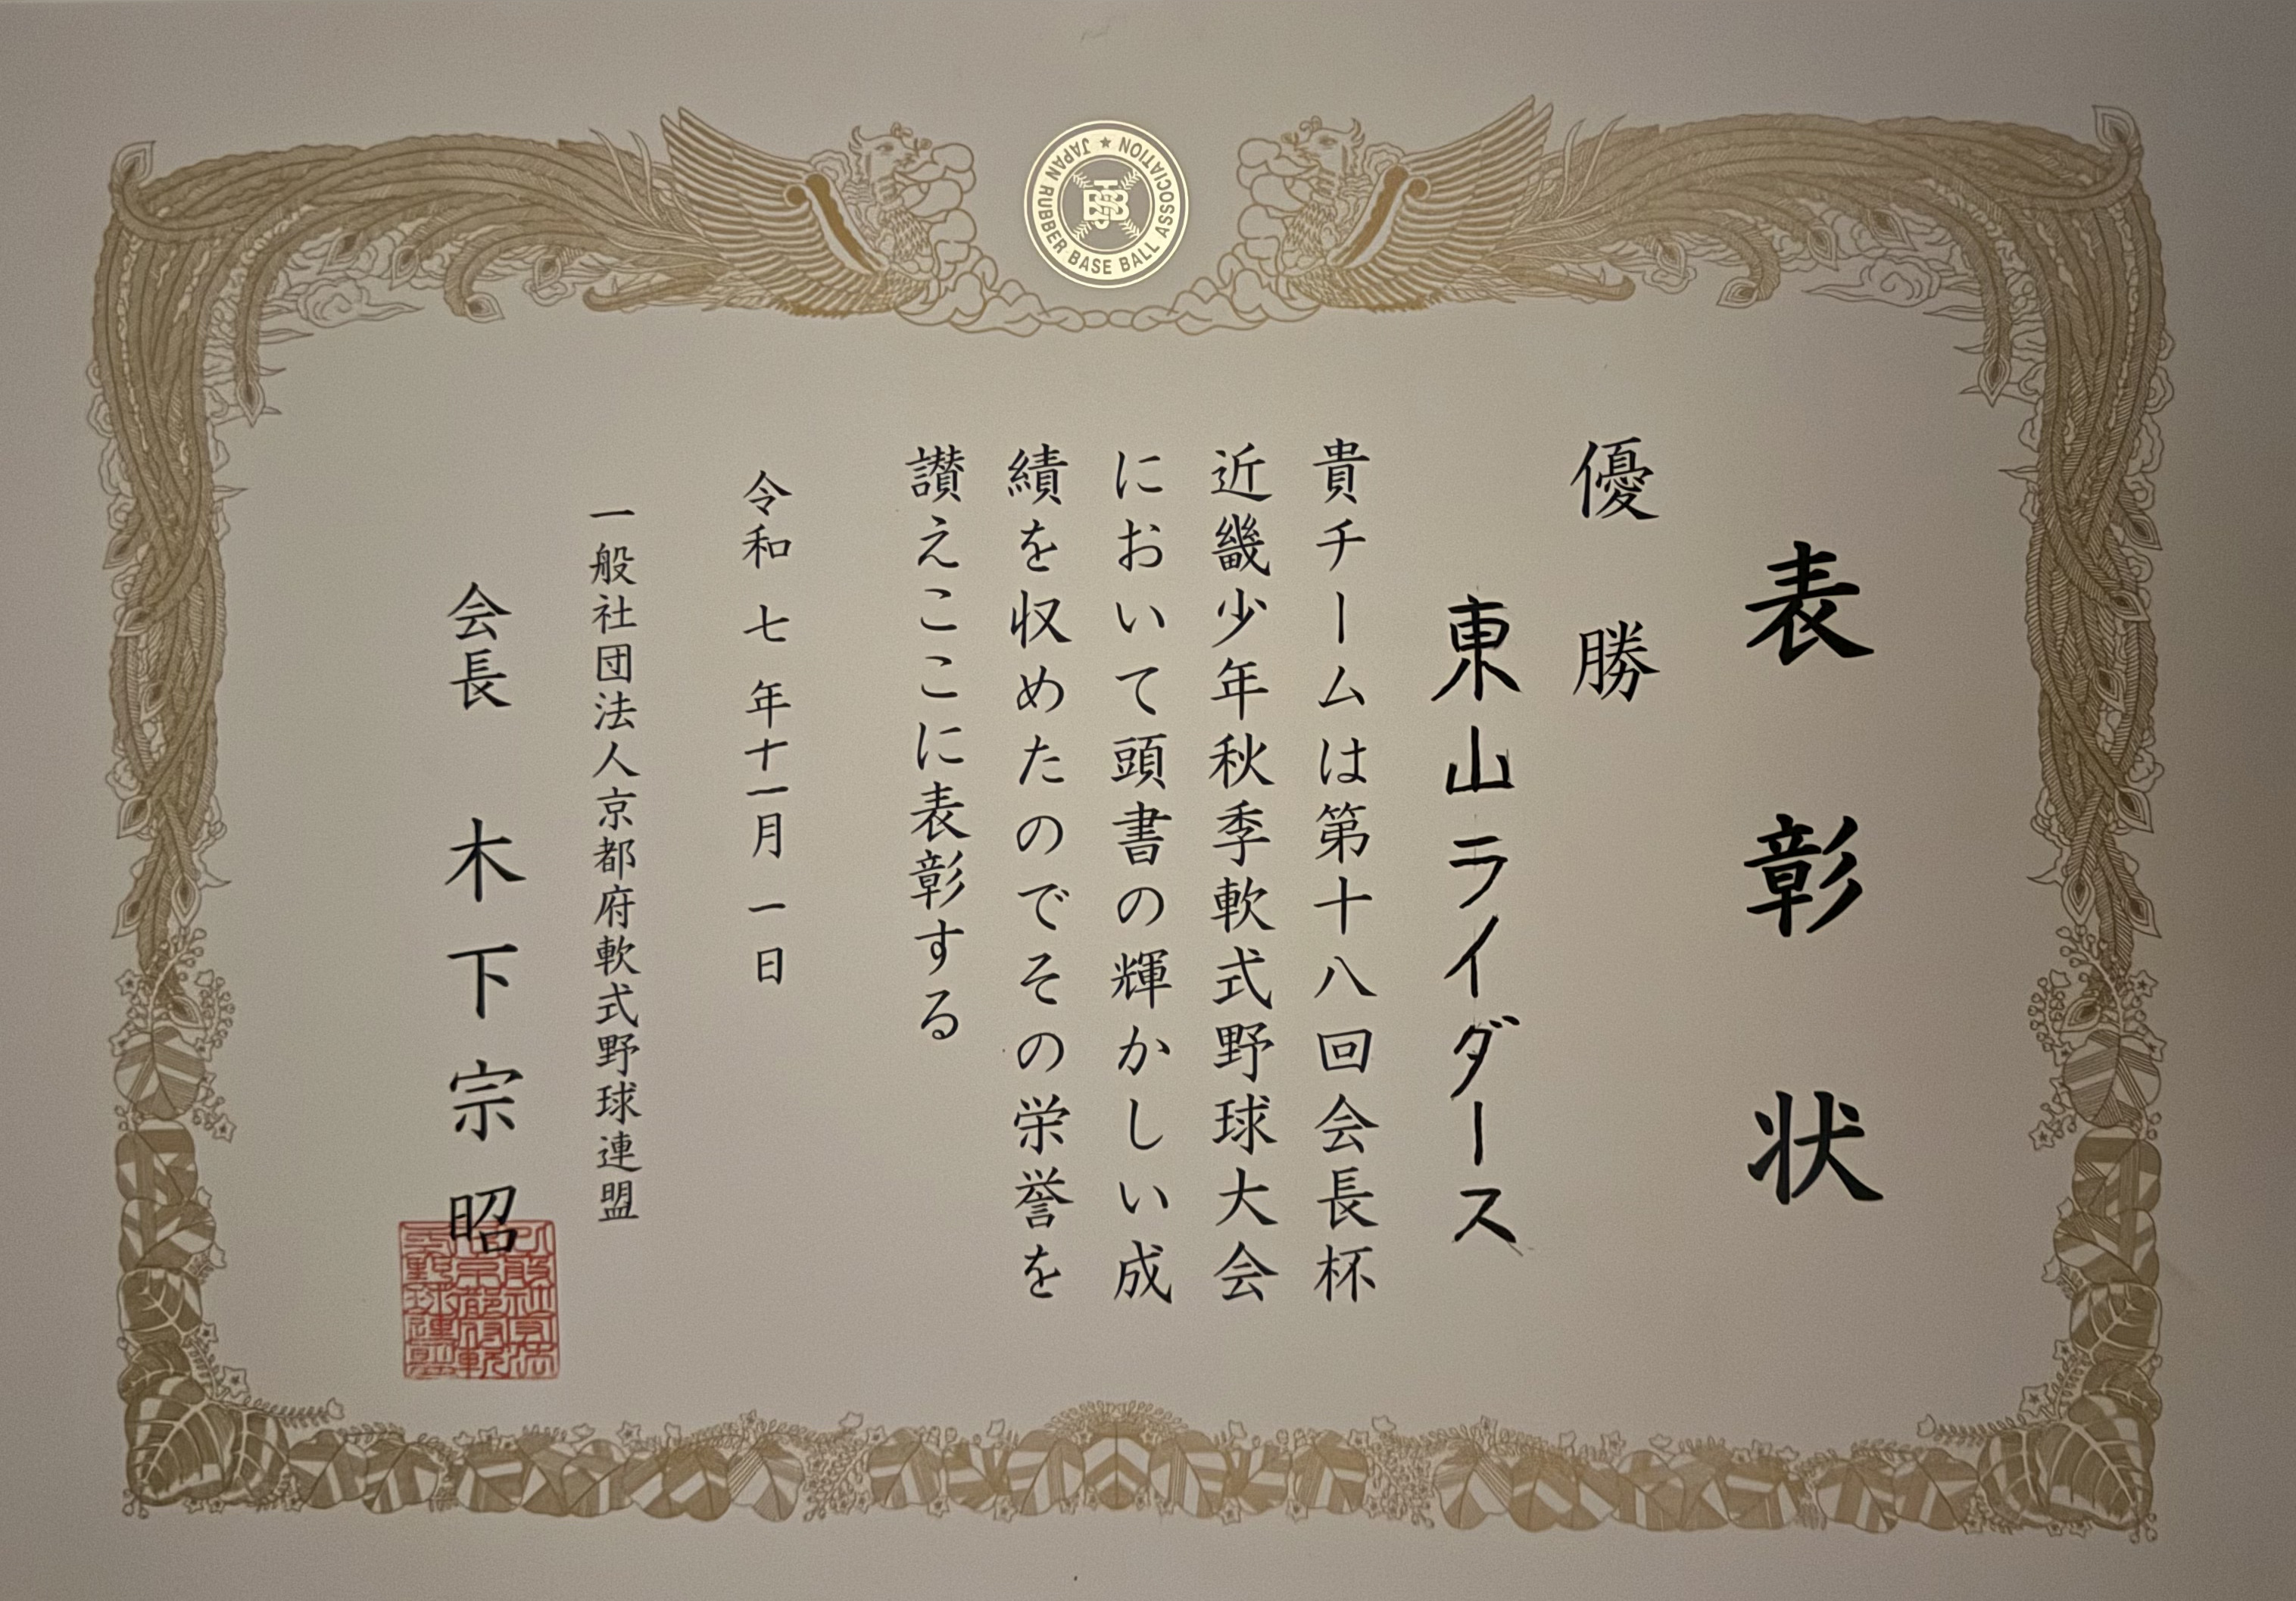 JAPAN RUBBER BASE BALL ASSOCIATION
表彰状
優勝
東山ライダース
貴チームは第十八回会長杯
近畿少年秋季軟式野球大会
において頭書の輝かしい成
績を収めたのでその栄誉を
讃えここに表彰する
令和七年十一月一日
一般社団法人京都府軟式野球連盟
会長 木下宗昭